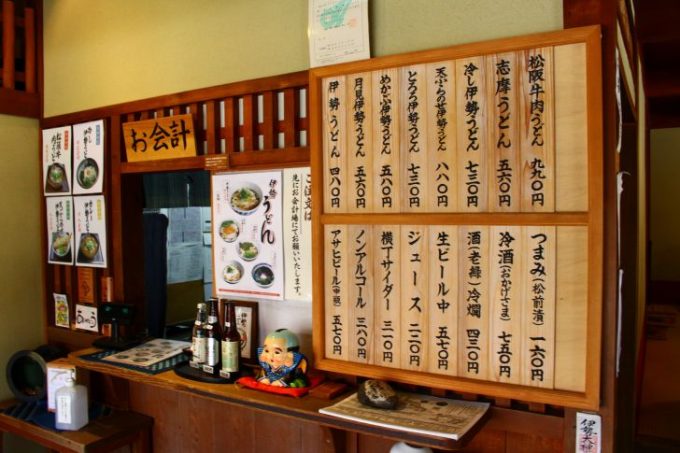 松阪牛肉うどん 九九〇円
志摩うどん 五六〇円
冷し伊勢うどん 七三〇円
天ぷらのせ伊勢うどん 八八〇円
とろろ伊勢うどん 七三〇円
めかぶ伊勢うどん 五八〇円
月見伊勢うどん 五六〇円
伊勢うどん 四八〇円
つまみ(松前漬) 一六〇円
冷酒(おかげさま) 七五〇円
酒(老緑)冷燗 四三〇円
生ビール中 五七〇円
ジュース 二二〇円
横丁サイダー 三一〇円
ノンアルコール 三八〇円
アサヒビール(中瓶) 五七〇円
お会計
ご注文は
先にお会計場にてお願いいたします。
伊勢
うどん
冷し
松阪牛
伊勢
伊勢大神